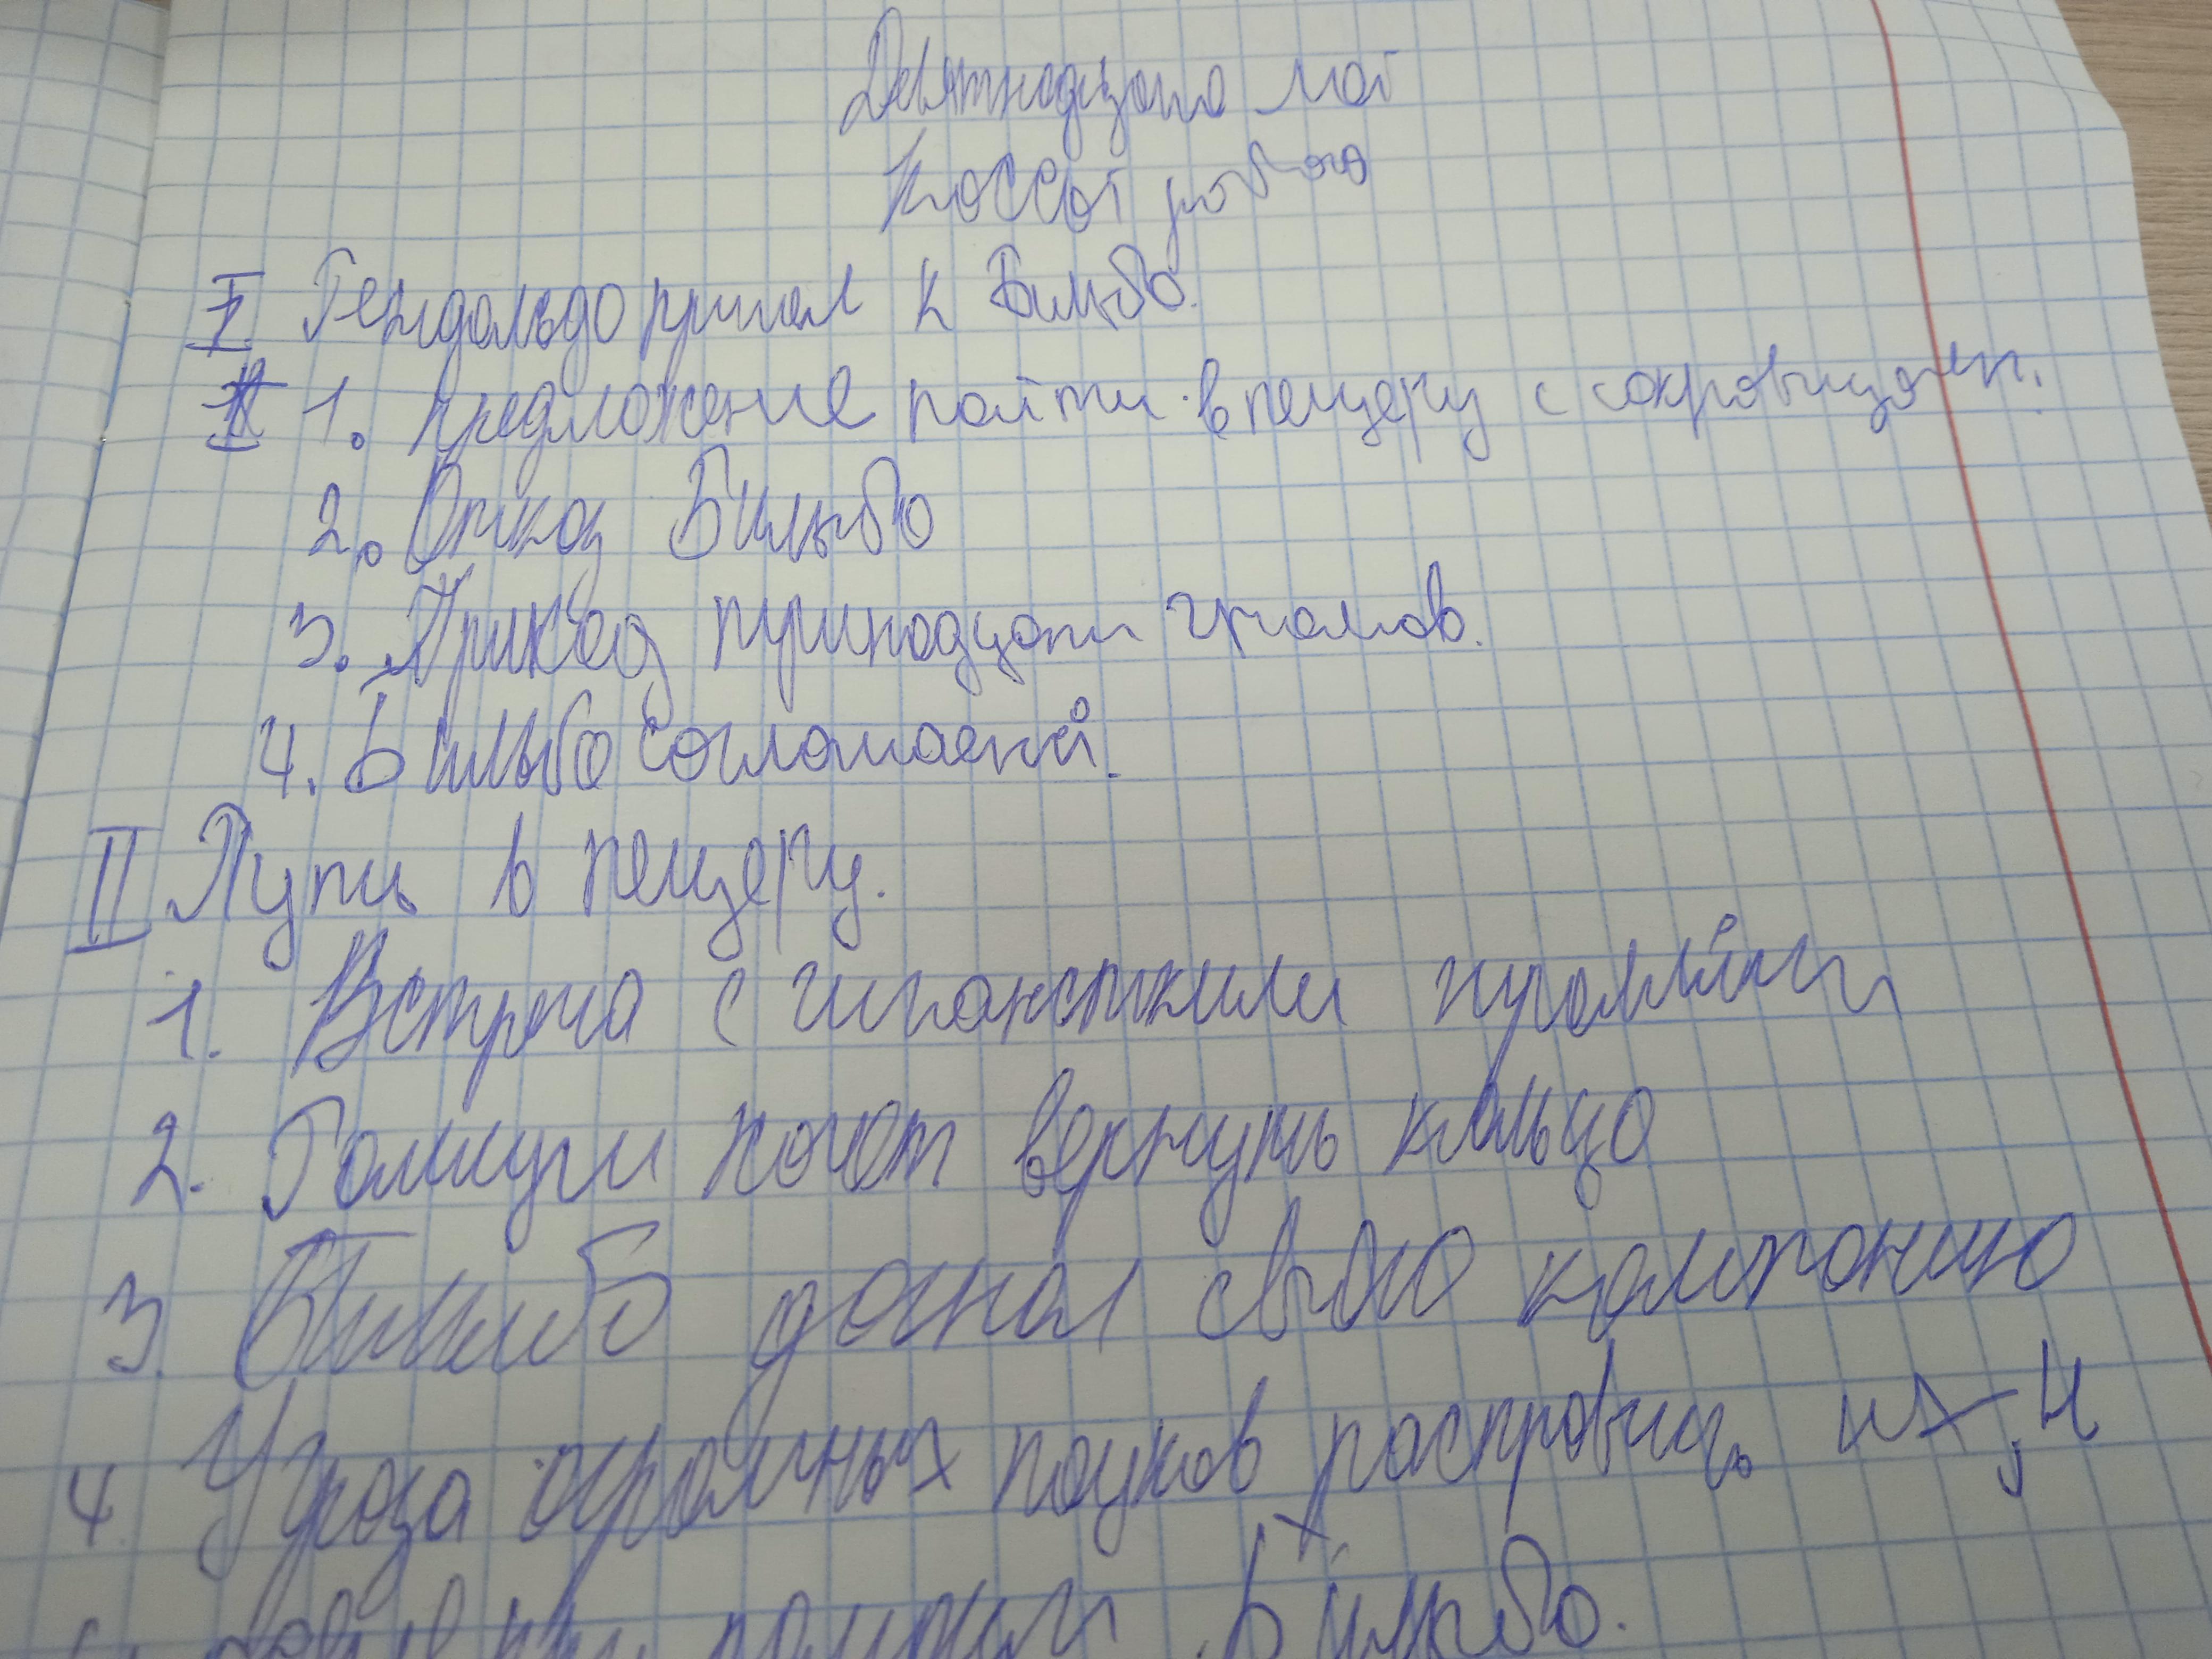 Девятнадцато мая
Классая работа
I. Гендальфо пришёл к Бильбо.
1. Предложение пойти в пещеру с сокровищами.
2. Отказ Бильбо
3. Приход тринадцати гномов.
4. Бильбо соглашается.
II Путь в пещеру.
1. Встреча с гигантскими
2. Голлум хочет вернуть кольцо
3. Бильбо догнал свою компанию
4. Угроза огромных пауков их, и
Бильбо.